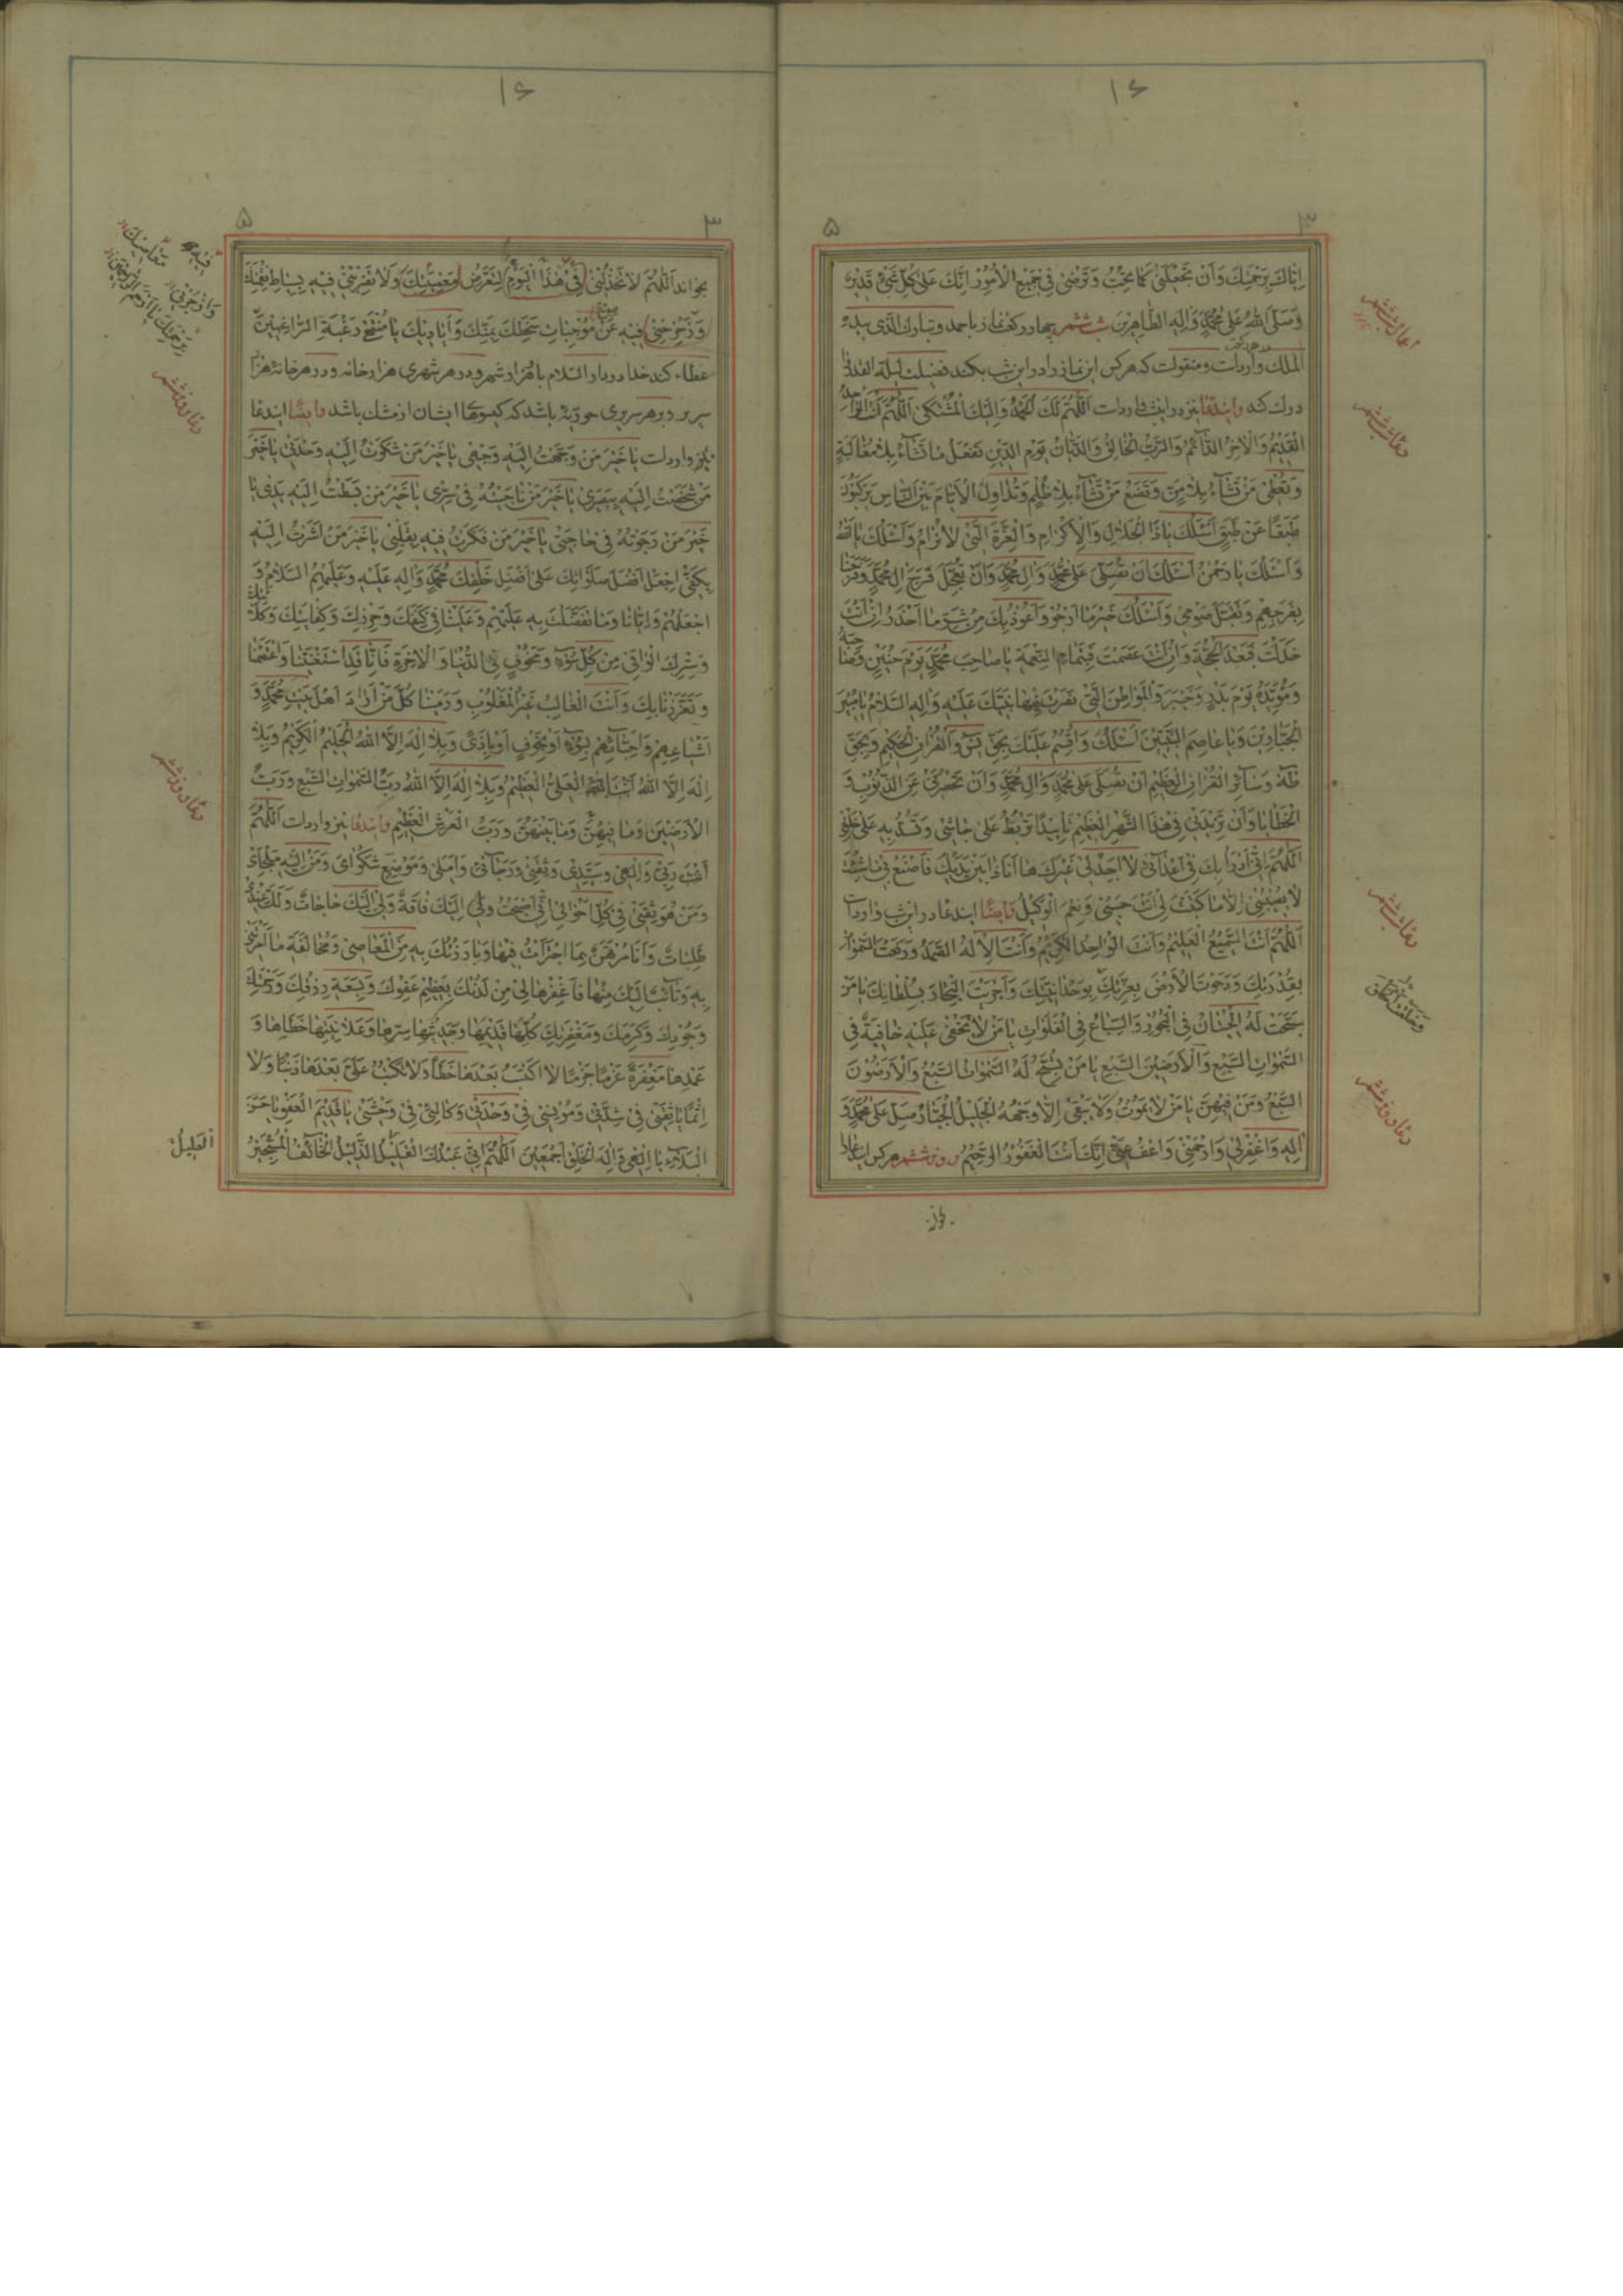 ۱۶
۳
۵
اِيّاكَ بِرَحْمَتِكَ وَاَنْ تَجْعَلَنى كَما تُحِبُّ وَتَرْضى فى جَميعِ الْاُمُورِ اِنَّكَ عَلى كُلِّ شَىْءٍ قَديرٌ
وَصَلَّى اللهُ عَلى مُحَمَّدٍ وَالِهِ الطّاهِرينَ شب ششم چهار ركعت نماز با حمد و تبارك الذى بيده
الملك وارد است و منقولست كه هر كس اين نماز را در اين شب بكند فضيلت ليلة القدر را
درك كند و ايندعا نيز در اينشب وارد است اَللّهُمَّ لَكَ الْحَمْدُ وَاِلَيْكَ الْمُشْتَكى اَللّهُمَّ اَنْتَ الْواحِدُ
الْقَديمُ وَالْاخِرُ الدّائِمُ وَالرَّبُّ الْخالِقُ وَالدَّيّانُ يَوْمَ الدّينِ تَفْعَلُ ما تَشآءُ بِلا مُغالَبَةٍ
وَتُعْطى مَنْ تَشآءُ بِلا مَنٍّ وَتَضَعُ مَنْ تَشآءُ بِلا ظُلْمٍ وَتُداوِلُ الْاَيّامَ بَيْنَ النّاسِ يَرْكَبُونَ
طَبَقًا عَنْ طَبَقٍ اَسْئَلُكَ يا ذَا الْجَلالِ وَالْاِكْرامِ وَالْعِزَّةِ الَّتى لا تُرامُ وَاَسْئَلُكَ يا اَللهُ
وَاَسْئَلُكَ يا رَحْمنُ اَسْئَلُكَ اَنْ تُصَلِّىَ عَلى مُحَمَّدٍ وَالِ مُحَمَّدٍ وَاَنْ تُعَجِّلَ فَرَجَ الِ مُحَمَّدٍ وَفَرَجَنا
بِفَرَجِهِمْ وَتَقَبَّلَ صَوْمى وَاَسْئَلُكَ خَيْرَ ما اَرْجُو وَاَعُوذُ بِكَ مِنْ شَرِّ ما اَحْذَرُ اِنْ اَنْتَ
خَذَلْتَ فَبَعْدَ الْحُجَّةِ وَاِنْ اَنْتَ عَصَمْتَ فَبِتَمامِ النِّعْمَةِ يا صاحِبَ مُحَمَّدٍ يَوْمَ حُنَيْنٍ وَصاحِبَهُ
وَمُؤَيِّدَهُ يَوْمَ بَدْرٍ وَخَيْبَرَ وَالْمَواطِنِ الَّتى نَصَرْتَ فيها نَبِيَّكَ عَلَيْهِ وَالِهِ السَّلامُ يا مُبيرَ
الْجَبّارينَ وَيا عاصِمَ النَّبِيّينَ اَسْئَلُكَ وَاُقْسِمُ عَلَيْكَ بِحَقِّ يس وَالْقُرْانِ الْحَكيمِ وَبِحَقِّ
طه وَسآئِرِ الْقُرْانِ الْعَظيمِ اَنْ تُصَلِّىَ عَلى مُحَمَّدٍ وَالِ مُحَمَّدٍ وَاَنْ تَحْصُرَنى عَنِ الذُّنُوبِ وَ
الْخَطايا وَاَنْ تَزيدَنى فى هذَا الشَّهْرِ الْعَظيمِ تَأْييدًا تَرْبُطُ عَلى جاشى وَتَسُدُّ بِهِ عَلى خَلَّتى
اَللّهُمَّ اِنّى اَدْرَأُ بِكَ فى اَعْدآئى لا اَجِدُ لى غَيْرَكَ ها اَنَا ذا بَيْنَ يَدَيْكَ فَاصْنَعْ بى ما شِئْتَ
لا يُصيبُنى اِلّا ما كَتَبْتَ لى اَنْتَ حَسْبى وَنِعْمَ الْوَكيلُ و ايضًا ايندعا در اينشب وارد است
اَللّهُمَّ اَنْتَ السَّميعُ الْعَليمُ وَاَنْتَ الْواحِدُ الْكَريمُ وَاَنْتَ الْاِلهُ الصَّمَدُ وَرَفَعْتَ السَّمواتِ
بِقُدْرَتِكَ وَدَحَوْتَ الْاَرْضَ بِعِزَّتِكَ بِوَحْدانِيَّتِكَ وَاَجْرَيْتَ الْبِحارَ بِسُلْطانِكَ يا مَنْ
سَبَّحَتْ لَهُ الْحيتانُ فِى الْبُحُورِ وَالسِّباعُ فِى الْفَلَواتِ يا مَنْ لا تَخْفى عَلَيْهِ خافِيَةٌ فِى
السَّمواتِ السَّبْعِ وَالْاَرَضينَ السَّبْعِ يا مَنْ يُسَبِّحُ لَهُ السَّمواتُ السَّبْعُ وَالْاَرَضُونَ
السَّبْعُ وَمَنْ فيهِنَّ يا مَنْ لا يَمُوتُ وَلا يَبْقى اِلّا وَجْهُهُ الْجَليلُ الْجَبّارُ صَلِّ عَلى مُحَمَّدٍ وَ
الِهِ وَاغْفِرْ لى وَارْحَمْنى وَاعْفُ عَنّى اِنَّكَ اَنْتَ الْغَفُورُ الرَّحيمُ روز ششم هر كس ايندعا را
بخواند
اعمال شب ششم
دعاى شب ششم
دعاى شب ششم
دعاى روز ششم
۱۶
۳
۵
بخواند اَللّهُمَّ لا تَخْذُلْنى فى هذَا الْيَوْمِ لِتَعَرُّضِ مَعْصِيَتِكَ وَلا تَضْرِبْنى فيهِ بِسِياطِ نَقِمَتِكَ
وَزَحْزِحْنى فيهِ عَنْ مُوْجِباتِ سَخَطِكَ بِمَنِّكَ وَاَياديكَ يا مُنْتَهى رَغْبَةِ الرّاغِبينَ
عطاء كند خدا در دار السلام باو هزار شهر و در هر شهرى هزار خانه و در هر خانه هزار
سرير و در هر سريرى حوريه باشد كه گيسوهاى ايشان از مشك باشد و ايضًا ايندعا
نيز وارد است يا خَيْرَ مَنْ وَجَّهْتُ اِلَيْهِ وَجْهى يا خَيْرَ مَنْ شَكَوْتُ اِلَيْهِ وَحْدَتى يا خَيْرَ
مَنْ شَخَصْتُ اِلَيْهِ بِبَصَرى يا خَيْرَ مَنْ ناجَيْتُهُ فى سِرّى يا خَيْرَ مَنْ بَسَطْتُ اِلَيْهِ يَدى يا
خَيْرَ مَنْ رَجَوْتُهُ فى حاجَتى يا خَيْرَ مَنْ فَكَّرْتُ فيهِ بِقَلْبى يا خَيْرَ مَنْ اَشَرْتُ اِلَيْهِ
بِكَفّى اِجْعَلْ اَفْضَلَ صَلَواتِكَ عَلى اَفْضَلِ خَلْقِكَ مُحَمَّدٍ وَالِهِ عَلَيْهِ وَعَلَيْهِمُ السَّلامُ وَ
اجْعَلْهُمْ وَاِيّانا وَما تَفَضَّلْتَ بِهِ عَلَيْهِمْ وَعَلَيْنا فى كَنَفِكَ وَحِرْزِكَ وَكِفايَتِكَ وَكَلائَتِكَ
وَسِتْرِكَ الْواقى مِنْ كُلِّ سُوءٍ وَمَخُوفٍ فِى الدُّنْيا وَالْاخِرَةِ فَاِنّا قَدِ اسْتَغْنَيْنا وَاعْتَصَمْنا
وَتَعَزَّزْنا بِكَ وَاَنْتَ الْغالِبُ غَيْرُ الْمَغْلُوبِ وَرَمَيْنا كُلَّ مَنْ اَرادَ اَهْلَ بَيْتِ مُحَمَّدٍ وَ
اَشْياعِهِمْ وَاَحِبّآئِهِمْ بِسُوءٍ اَوْ بِخَوْفٍ اَوْ بِاَذًى وَبِلا اِلهَ اِلَّا اللهُ الْحَليمُ الْكَريمُ وَبِلا
اِلهَ اِلَّا اللهُ الْعَلِىُّ الْعَظيمُ وَبِلا اِلهَ اِلَّا اللهُ رَبُّ السَّمواتِ السَّبْعِ وَرَبُّ
الْاَرَضينَ وَما فيهِنَّ وَما بَيْنَهُنَّ وَرَبُّ الْعَرْشِ الْعَظيمِ و ايندعا نيز وارد است اَللّهُمَّ
اَنْتَ رَبّى وَاِلهى وَسَيِّدى وَثِقَتى وَرَجآئى وَاَمَلى وَمَوْضِعُ شَكْواىَ وَمَنْ اِلَيْهِ مَلْجَاىَ
وَمَنْ هُوَ ثِقَتى فى كُلِّ اَحْوالى اِنّى اَصْبَحْتُ وَلى اِلَيْكَ فاقَةٌ وَلى اِلَيْكَ حاجاتٌ وَلَكَ عِنْدى
طَلِباتٌ وَاَنَا مُرْتَهَنٌ بِمَا اجْتَرَأْتُ فيها وَبارَزْتُكَ بِهِ مِنَ الْمَعاصى وَمُخالَفَةِ ما اَمَرْتَنى
بِهِ وَتآئِبٌ اِلَيْكَ مِنْها فَاغْفِرْها لى مِنْ لَدُنْكَ بِعَظيمِ عَفْوِكَ وَبِسَعَةِ رِزْقِكَ وَرَحْمَتِكَ
وَجُودِكَ وَكَرَمِكَ وَمَغْفِرَتِكَ كُلِّها قَديمِها وَحَديثِها سِرِّها وَعَلانِيَتِها خَطَاِها وَ
عَمْدِها مَغْفِرَةً عَزْمًا جَزْمًا لا اَكْتَسِبُ بَعْدَها خَطَأً وَلا تَكْتُبْ عَلَىَّ بَعْدَها ذَنْبًا وَلا
اِثْمًا يا ثِقَتى فى شِدَّتى وَمُونِسى فى وَحْدَتى وَكالِئى فى وَحْشَتى يا قَديمَ الْعَفْوِ يا حَسَنَ
الْبَلآءِ يا اِلهى وَاِلهَ الْخَلْقِ اَجْمَعينَ اَللّهُمَّ اِنّى عَبْدُكَ الْقَليلُ الذَّليلُ الْخآئِفُ الْمُسْتَجيرُ
اَلْعَليلُ
دعاى روز ششم
دعاى روز ششم